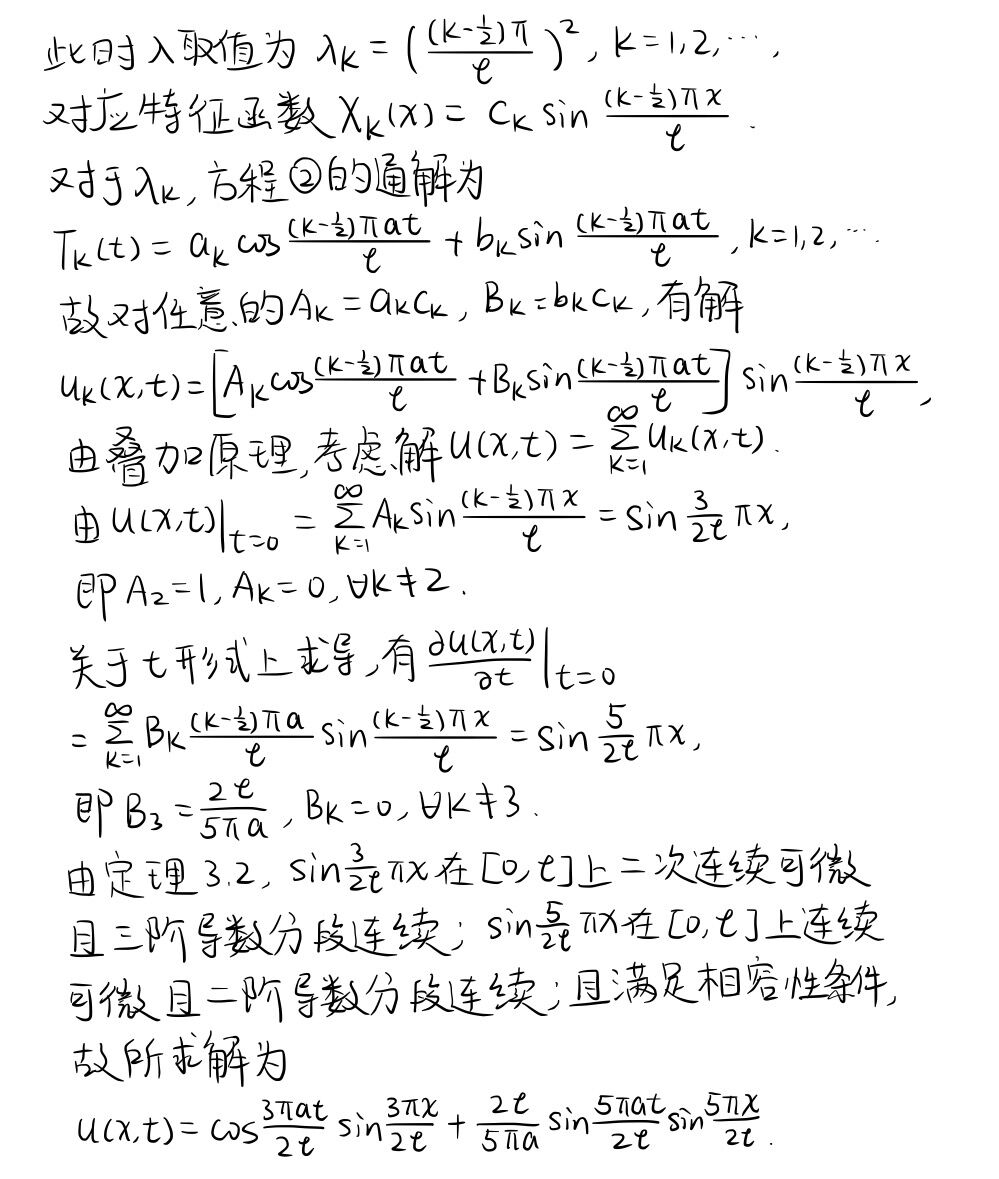 此时λ取值为 λₖ = ((k-½)π/ℓ)², k=1,2,⋯,
对应特征函数 Xₖ(x) = Cₖ sin (k-½)πx/ℓ.
对于λₖ, 方程②的通解为
Tₖ(t) = aₖ cos (k-½)πat/ℓ + bₖ sin (k-½)πat/ℓ, k=1,2,⋯.
故对任意的 Aₖ = aₖcₖ, Bₖ = bₖcₖ, 有解
uₖ(x,t) = [Aₖ cos (k-½)πat/ℓ + Bₖ sin (k-½)πat/ℓ] sin (k-½)πx/ℓ,
由叠加原理, 考虑解 u(x,t) = ∑_{k=1}^{∞} uₖ(x,t).
由 u(x,t)|_{t=0} = ∑_{k=1}^{∞} Aₖ sin (k-½)πx/ℓ = sin 3/2ℓ πx,
即 A₂=1, Aₖ=0, ∀k≠2.
关于 t 形式上求导, 有 ∂u(x,t)/∂t |_{t=0}
= ∑_{k=1}^{∞} Bₖ (k-½)πa/ℓ sin (k-½)πx/ℓ = sin 5/2ℓ πx,
即 B₃ = 2ℓ/5πa, Bₖ=0, ∀k≠3.
由定理 3.2, sin 3/2ℓ πx 在 [0,ℓ] 上二次连续可微
且三阶导数分段连续; sin 5/2ℓ πx 在 [0,ℓ] 上连续
可微且二阶导数分段连续; 且满足相容性条件,
故所求解为
u(x,t) = cos 3πat/2ℓ sin 3πx/2ℓ + 2ℓ/5πa sin 5πat/2ℓ sin 5πx/2ℓ.